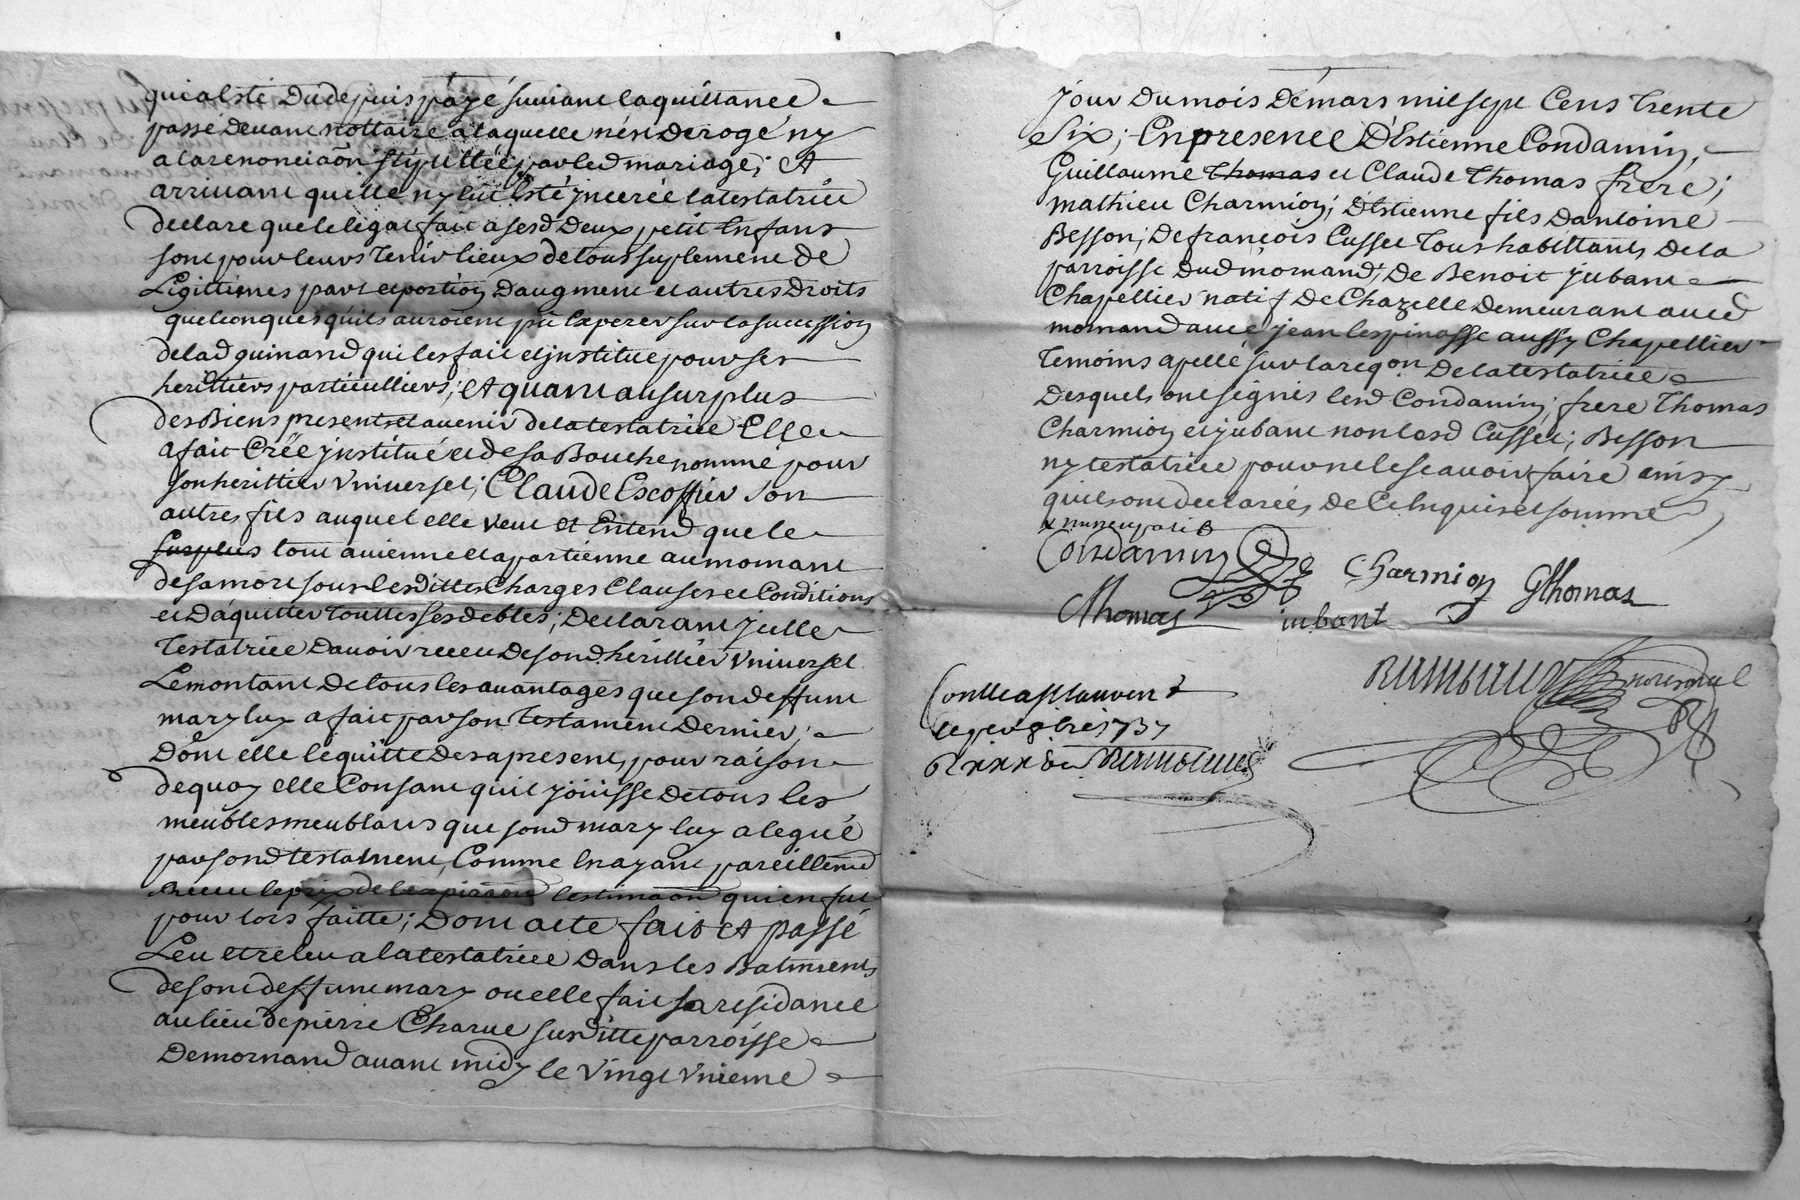 quia lsté Dudepuis payé suivant laquittance
passé devant nottaire a laquelle nési derogé ny
a larenonciãon stipullée par led mariage; et
arrivant quelle ny lut esté jncerée latestatrice
declare que le legat fait a sesd deux petit enfans
sont pour leurs tenir lieux de tous suplement de
Legittimes part et portion daugment et autres droits
quelconques quils auroient pû Esperer sur la succession
delad guinand quiles fait et jnstitue pour ses
herittiers particulliers; et quant au surplus
des Biens presents et avenir de la testatrice Elle
a fait Créé jnstitué et de sa Bouche nommé pour
son herittier vniversel; Claude Escoffier son
autres fils auquel elle veut et Entend que le
surplus tout avienne et apartienne au momant
de sa mort sous lesdittes Charges Clauses et Conditions
et Daquitter touttes ses debtes; Declarant jcelle
Testatrice davoir receu de sond herittier vniversel
Le montant de tous les avantages que son deffunt
mary luy a fait par son testament dernier,
Dont elle lequitte des apresent, pour raison
dequoy elle Consant quil joüisse de tous les
meubles meublans que sond mary luy a legué
par sond testament, Comme En ayant pareillemt
receu le prix de lexpiraõn lestimaõn qui en fut
pour lors faitte; Dont acte fait et passé
Leu et releu a la testatrice dans les Batiments
de sont deffunt mary ou elle fait sa residance
au lieu de pierre Charue susditte parroisse
Demornand avant midy le vingt vnieme
jour du mois Démars mil sept Cens trente
Six; En presence D'Estienne Condamin,
Guillaume Thomas et Claude Thomas frere;
mathieu Charmion; d'Estienne fils dantoine
Besson; De françois Cusset Tous habittants de la
parroisse dud mornand; De Benoit jubant
Chapellier natif De Chazelle Demeurant aud
mornand avec jean lespinasse aussy Chapellier
Temoins apellé sur la reqon De la testatrice
Desquels ont signés lesd Condamin; frere Thomas
Charmion et jubant non lesd Cusset; Besson
ny testatrice pour ne le sçavoir faire ainsy
quils ont declarées, de Ce Enquis et sommé
x nuncupatif
Condamin Charmion GThomas
CThomas iubant